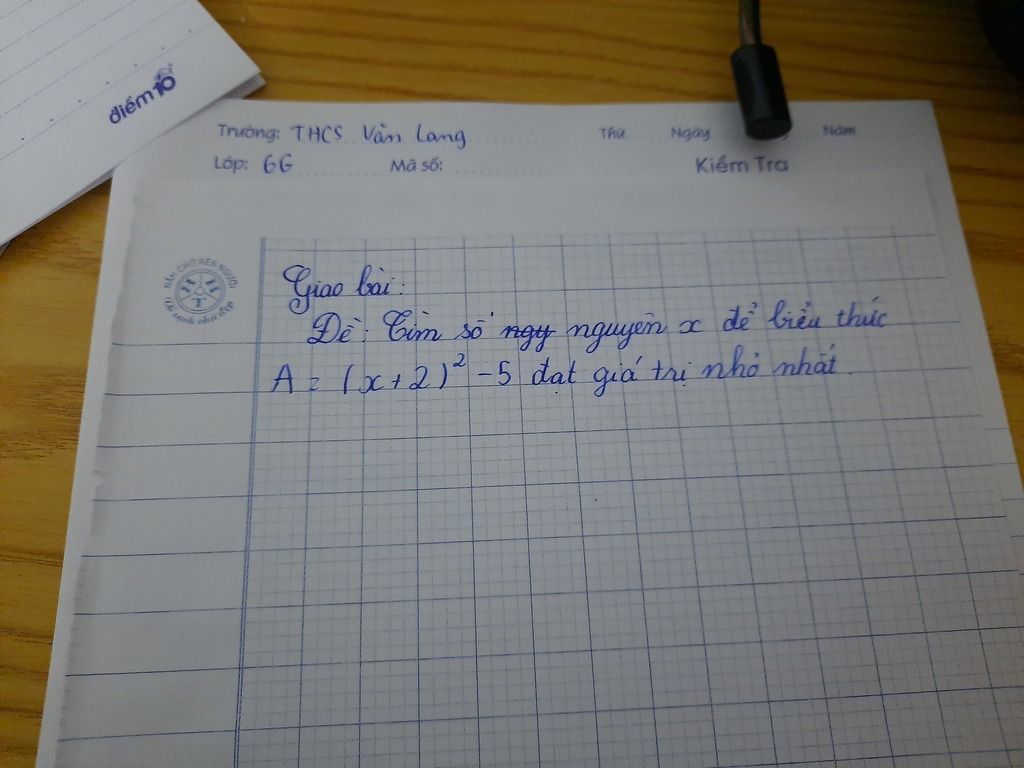 điểm 10
Trường: THCS Văn Lang Thứ Ngày Năm
Lớp: 6G Mã số: Kiểm Tra
Giao bài:
Đề: Tìm số ngy nguyên x để biểu thức
A = (x+2)² - 5 đạt giá trị nhỏ nhất.